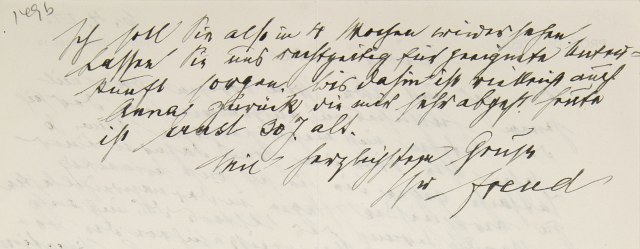 1496
Ich soll Sie also in 4 Wochen wiedersehen
Lassen Sie uns rechtzeitig für geeignete Unter=
kunft sorgen. Bis dahin ist vielleicht auch
Anna zurück die mir sehr abgeht. Heute
ist Ernst 30 J. alt.
Mit herzlichstem Gruß
Ihr Freud